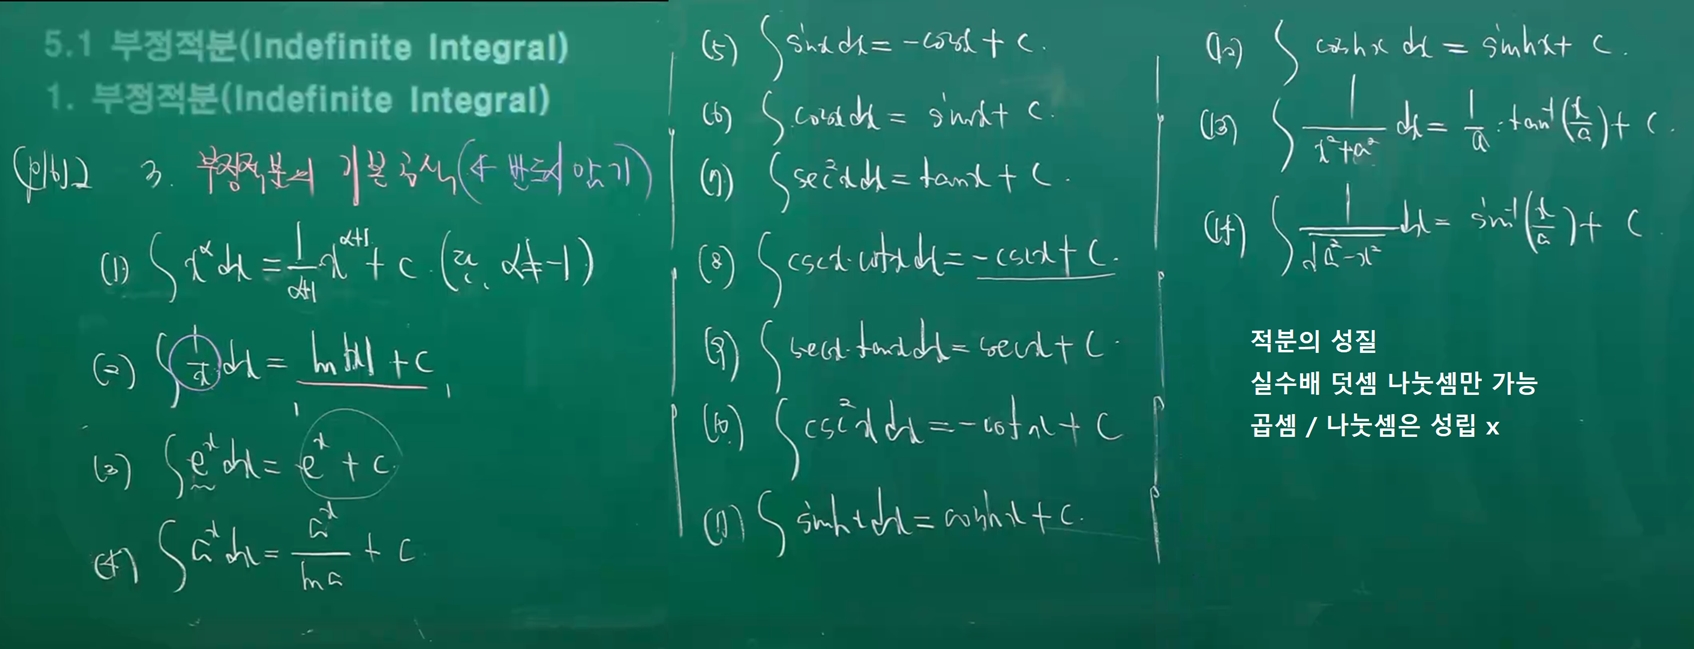 5.1 부정적분(Indefinite Integral)
1. 부정적분(Indefinite Integral)
(p162) 3. 부정적분의 기본공식(← 반드시 암기)
(1) ∫ x^α dx = 1/(α+1) x^(α+1) + C. (단, α ≠ -1)
(2) ∫ 1/x dx = ln|x| + C
(3) ∫ e^x dx = e^x + C.
(4) ∫ a^x dx = a^x/ln a + C.
(5) ∫ sinx dx = -cosx + C.
(6) ∫ cosx dx = sinx + C.
(7) ∫ sec²x dx = tanx + C.
(8) ∫ cscx·cotx dx = -cscx + C.
(9) ∫ secx·tanx dx = secx + C.
(10) ∫ csc²x dx = -cotx + C
(11) ∫ sinhx dx = coshx + C.
(12) ∫ coshx dx = sinhx + C.
(13) ∫ 1/(x²+a²) dx = 1/a · tan⁻¹(x/a) + C.
(14) ∫ 1/√(a²-x²) dx = sin⁻¹(x/a) + C
적분의 성질
실수배 덧셈 나눗셈만 가능
곱셈 / 나눗셈은 성립 x